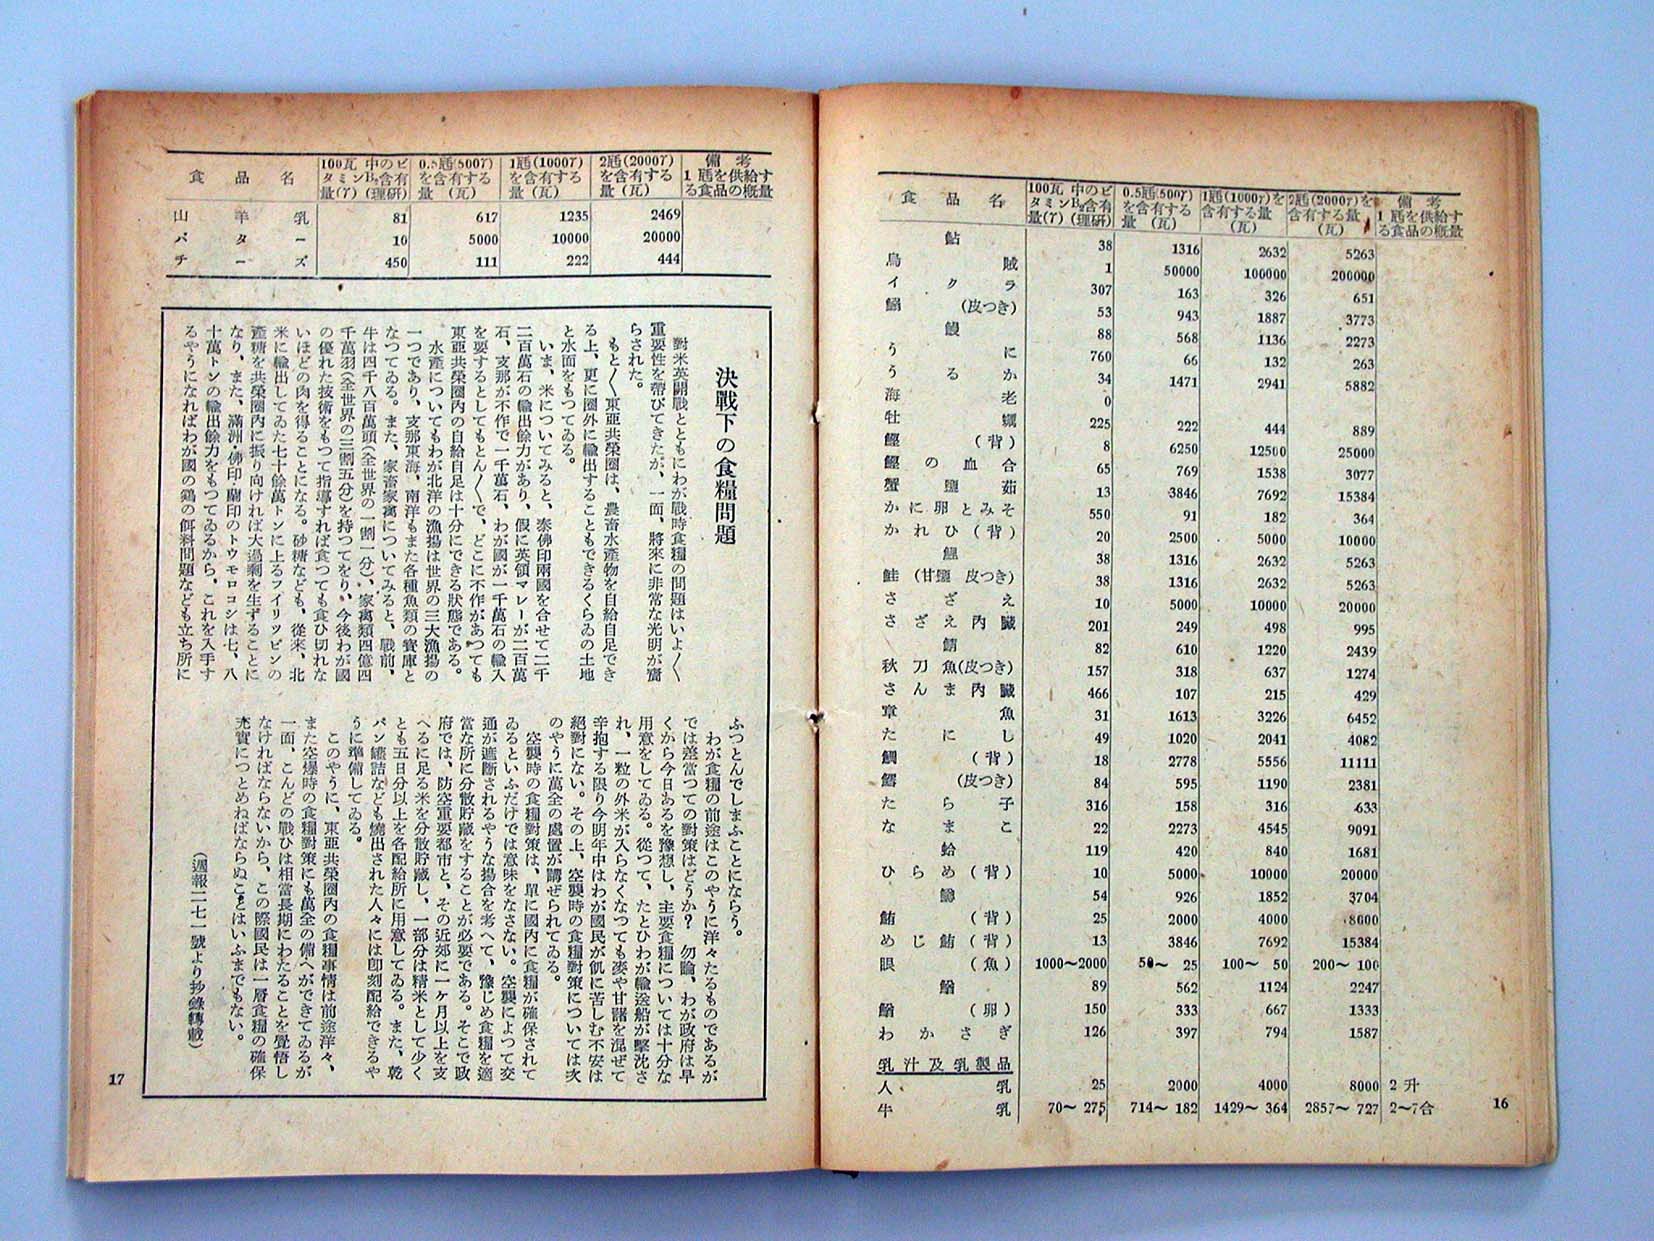 食品名 100瓦中のビタミンB₂含有量(γ)(理研) 0.5瓱(500γ)を含有する量(瓦) 1瓱(1000γ)を含有する量(瓦) 2瓱(2000γ)を含有する量(瓦) 備考 1瓱を供給する食品の概量
鮎 38 1316 2632 5263
烏賊 1 50000 100000 200000
イクラ 307 163 326 651
鰯(皮つき) 53 943 1887 3773
鰻 88 568 1136 2273
うに 760 66 132 263
うるか 34 1471 2941 5882
海老 0
牡蠣 225 222 444 889
鰹(背) 8 6250 12500 25000
鰹の血合 65 769 1538 3077
蟹鹽茹 13 3846 7692 15384
かに卵とみそ 550 91 182 364
かれひ(背) 20 2500 5000 10000
鯉 38 1316 2632 5263
鮭(甘鹽 皮つき) 38 1316 2632 5263
さざえ 10 5000 10000 20000
さざえ内臓 201 249 498 995
鯖 82 610 1220 2439
秋刀魚(皮つき) 157 318 637 1274
さんま内臓 466 107 215 429
章魚 31 1613 3226 6452
たにし 49 1020 2041 4082
鯛(背) 18 2778 5556 11111
鱈(皮つき) 84 595 1190 2381
たら子 316 158 316 633
なまこ 22 2273 4545 9091
蛤 119 420 840 1681
ひらめ(背) 10 5000 10000 20000
鱒 54 926 1852 3704
鮪(背) 25 2000 4000 8000
めじ鮪(背) 13 3846 7692 15384
眼(魚) 1000〜2000 50〜25 100〜50 200〜100
鰡 89 562 1124 2247
鰡(卵) 150 333 667 1333
わかさぎ 126 397 794 1587
乳汁及乳製品
人乳 25 2000 4000 8000 2升
牛乳 70〜275 714〜182 1429〜364 2857〜727 2〜7合
16
食品名 100瓦中のビタミンB₂含有量(γ)(理研) 0.5瓱(500γ)を含有する量(瓦) 1瓱(1000γ)を含有する量(瓦) 2瓱(2000γ)を含有する量(瓦) 備考 1瓱を供給する食品の概量
山羊乳 81 617 1235 2469
バター 10 5000 10000 20000
チーズ 450 111 222 444
決戰下の食糧問題
對米英開戰とともにわが戰時食糧の問題はいよ〳〵
重要性を帶びてきたが、一面、將來に非常な光明が齎
らされた。
もと〳〵東亞共榮圏は、農畜水產物を自給自足でき
る上、更に圏外に輸出することもできるくらゐの土地
と水面をもつてゐる。
いま、米についてみると、泰佛印兩國を合せて二千
二百萬石の輸出餘力があり、假に英領マレーが二百萬
石、支那が不作で一千萬石、わが國が一千萬石の輸入
を要するとしてもとん〳〵で、どこに不作があつても
東亞共榮圏内の自給自足は十分にできる狀態である。
水產についてもわが北洋の漁揚は世界の三大漁揚の
一つであり、支那東海、南洋もまた各種魚類の寶庫と
なつてゐる。また、家畜家禽についてみると、戰前、
牛は四千八百萬頭(全世界の一割一分)、家禽類四億四
千萬羽(全世界の三割五分)を持つてをり、今後わが國
の優れた技術をもつて指導すれば食つても食ひ切れな
いほどの肉を得ることになる。砂糖なども、從來、北
米に輸出してゐた七十餘萬トンに上るフイリツピンの
產糖を共榮圏内に振り向ければ大過剩を生ずることに
なり、また、滿洲・佛印・蘭印のトウモロコシは七、八
十萬トンの輸出餘力をもつてゐるから、これを入手す
るやうになればわが國の鷄の餌料問題なども立ち所に
ふつとんでしまふことにならう。
わが食糧の前途はこのやうに洋々たるものであるが
では差當つての對策はどうか? 勿論、わが政府は早
くから今日あるを豫想し、主要食糧については十分な
用意をしてゐる。從つて、たとひわが輸送船が擊沈さ
れ、一粒の外米が入らなくなつても麥や甘諸を混ぜて
辛抱する限り今明年中はわが國民が飢に苦しむ不安は
絕對にない。その上、空襲時の食糧對策については次
のやうに萬全の處置が講ぜられてゐる。
空襲時の食糧對策は、單に國内に食糧が確保されて
ゐるといふだけでは意味をなさない。空襲によつて交
通が遮斷されるやうな場合を考へて、豫じめ食糧を適
當な所に分散貯藏をすることが必要である。そこで政
府では、防空重要都市と、その近郊に一ケ月以上を支
へるに足る米を分散貯藏し、一部分は精米として少く
とも五日分以上を各配給所に用意してゐる。また、乾
パン罐詰なども燒出された人々には卽刻配給できるや
うに準備してゐる。
このやうに、東亞共榮圏内の食糧事情は前途洋々、
また空爆時の食糧對策にも萬全の備へができてゐるが
一面、こんどの戰ひは相當長期にわたることを覺悟し
なければならないから、この際國民は一層食糧の確保
充實につとめねばならぬことはいふまでもない。
(週報二七一號より抄錄轉載)
17